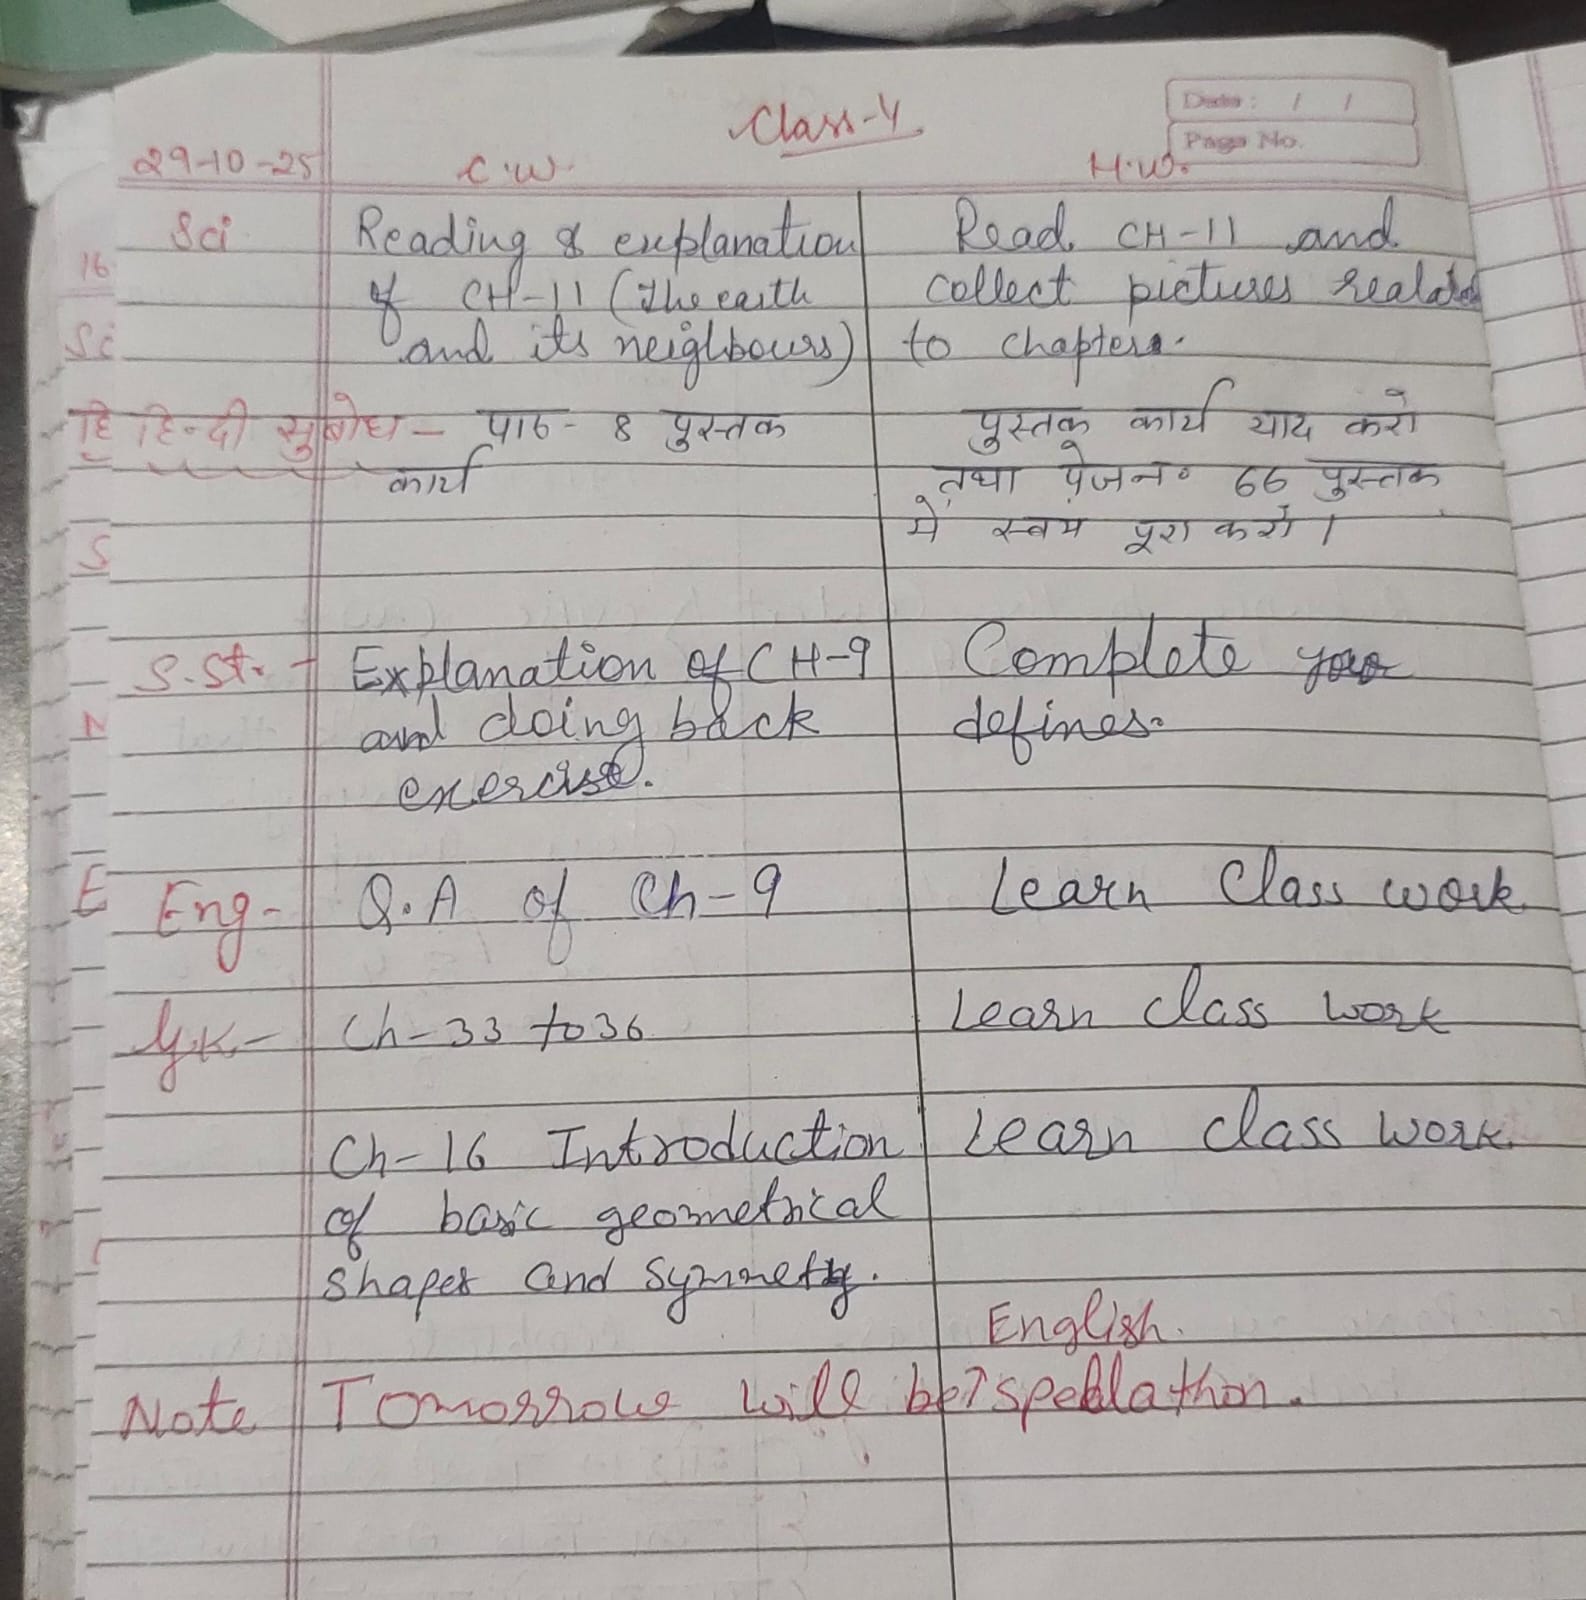 Class-4
Date : / /
Page No.
29-10-25 C.W. H.W.
Sci Reading & explanation Read CH-11 and
of CH-11 (The earth collect pictures
and its neighbours) to chapters.
हिन्दी सुबोध - पाठ - 8 पुस्तक पुस्तक कार्य याद करो
कार्य तथा पेज न० 66 पुस्तक
मे स्वय पूरा करो ।
S.St. - Explanation of CH-9 Complete
and doing back defines.
exercise.
Eng - Q.A of Ch-9 Learn Class work
G.K. - Ch-33 to 36 Learn class work
Ch-16 Introduction Learn class work.
of basic geometrical
shapes and symmetry.
English.
Note Tomorrow will be spellathon.
16
Sc
हि
S
N
E